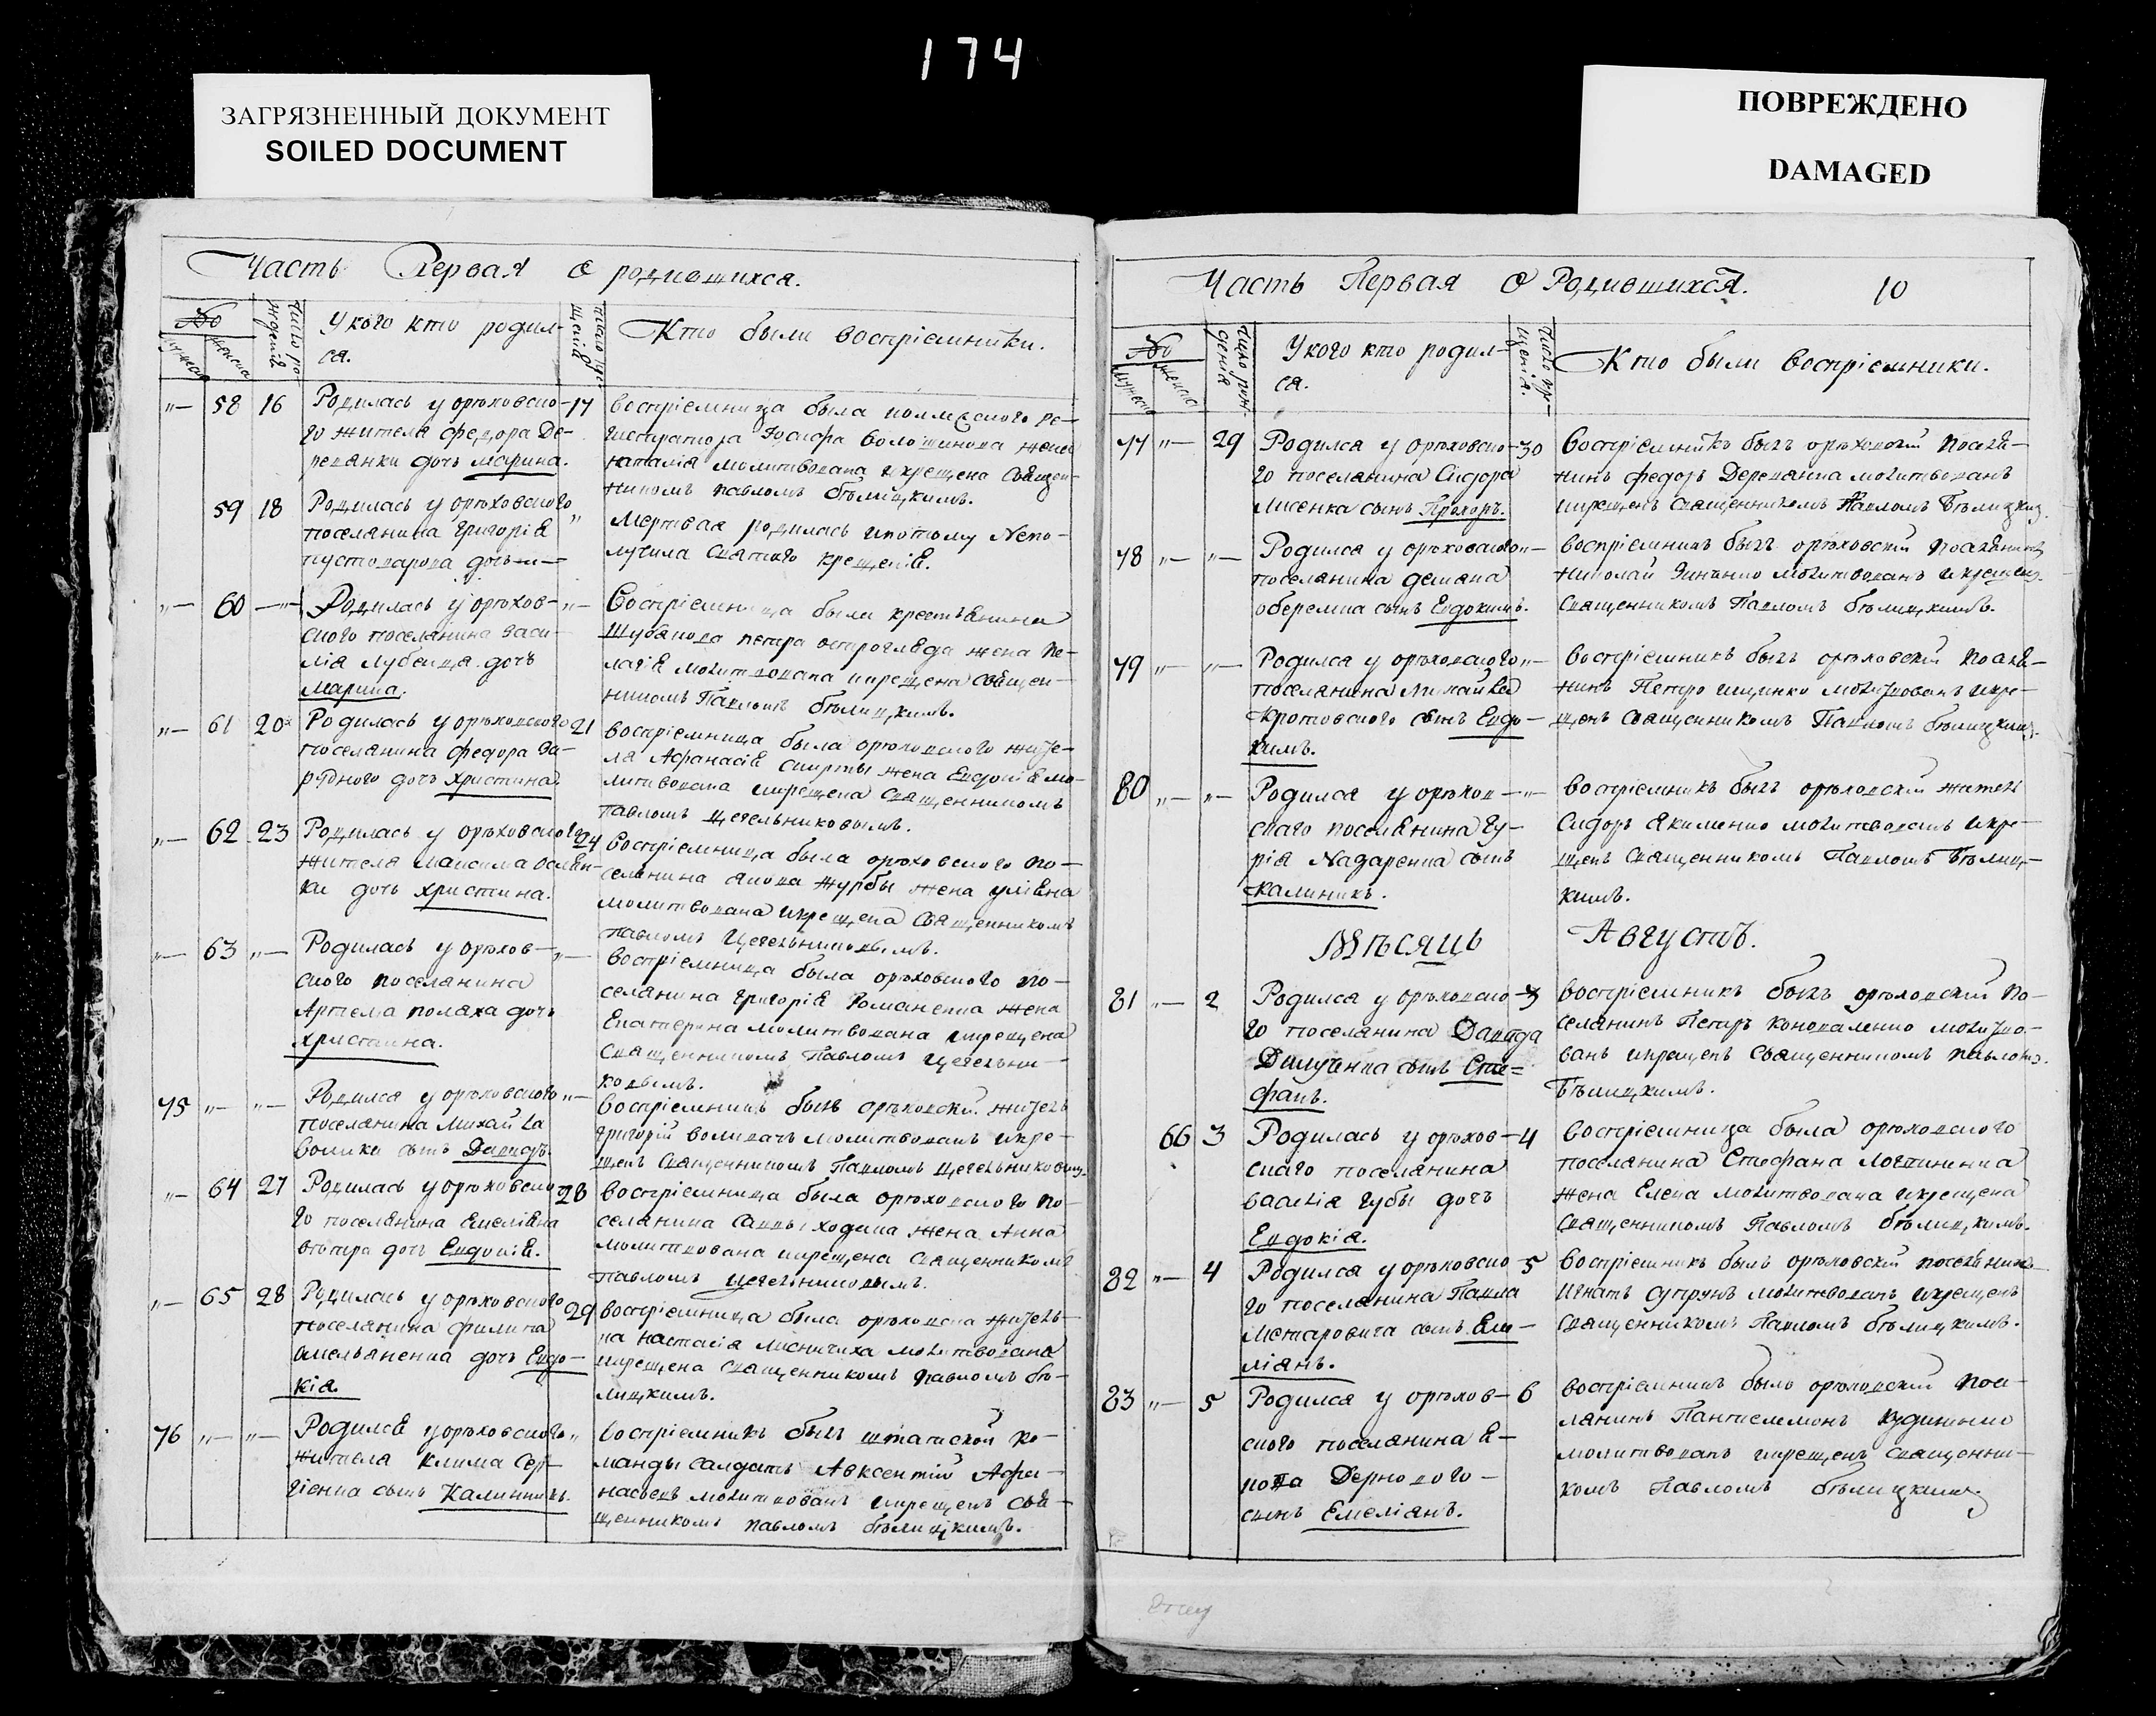 174
ЗАГРЯЗНЕННЫЙ ДОКУМЕНТ
SOILED DOCUMENT
ПОВРЕЖДЕНО
DAMAGED
Часть Первая О родившихся.
№
У кого кто родил-
ся.
Кто были воспріемники.
"— 58 16 Родилась у орѣховско-
го жителя федора Де-
реванки дочь Марина.
17 воспріемница была
Іосифа волошинова жена
наталія молитвована и крещена Священ-
никомъ павломъ бѣлицкимъ.
59 18 Родилась у орѣховского
поселянина григорія
дочь —
" Мертвая родилась и потому Непо-
лучила Святого крещенія.
"— 60 —"— Родилась у орѣхов-
ского поселянина Васи-
лія дочь
Марина.
"— Воспріемница были крестьянина
петра жена Пе-
лагія молитвована и крещена Священ-
никомъ Павломъ бѣлицкимъ.
"— 61 20 Родилась у орѣховского
поселянина федора За-
рудного дочь Христина.
21 воспріемница была орѣховского жите-
ля Афанасія жена Евдокія мо-
литвована и крещена Священникомъ
павломъ щегельниковымъ.
"— 62 23 Родилась у орѣховского
жителя Максима
дочь христина.
24 воспріемница была орѣховского по-
селянина якова журбы жена
молитвована и крещена Священникомъ
павломъ Щегельниковымъ.
"— 63 "— Родилась у орѣхов-
ского поселянина
Артема поляха дочь
христина.
"— воспріемница была орѣховского по-
селянина григорія Романенка жена
Екатерина молитвована и крещена
Священникомъ Павломъ щегельни-
ковымъ.
75 "— "— Родился у орѣховского
поселянина Михайла
волики сынъ Давидъ.
"— Воспріемникъ былъ орѣховский житель
григорій молитвованъ и кре-
щенъ Священникомъ Павломъ щегельниковым.
"— 64 27 Родилась у орѣховско-
го поселянина Емеліяна
дочь Евдокія.
28 воспріемница была орѣховского по-
селянина Саввы жена Анна
молитвована и крещена Священникомъ
павломъ щегельниковымъ.
"— 65 28 Родилась у орѣховского
поселянина филипа
омельяненка дочь Евдо-
кія.
29 воспріемница была орѣховска житель-
ка настасія молитвована
и крещена Священникомъ павломъ бѣ-
лицкимъ.
76 "— "— Родился у орѣховского
жителя клима Сер-
гіенка сынъ Калинникъ.
" воспріемникъ былъ штатской ко-
манды салдатъ Авксентій Афа-
насьевъ молитвованъ и крещенъ Свя-
щенникомъ павломъ бѣлицкимъ.
Часть Первая О Родившихся.
10
№
У кого кто родил-
ся.
Кто были воспріемники.
77 "— 29 Родился у орѣховско-
го поселянина Сидора
лисенка сынъ Прохоръ.
30 воспріемникъ былъ орѣховский поселя-
нинъ федоръ Дереванка молитвованъ
и крещенъ Священникомъ Павломъ Бѣлицким.
78 "— "— Родился у орѣховского
поселянина демяна
оберемка сынъ Евдокимъ.
"— воспріемникъ былъ орѣховский поселянинъ
николай Зинченко молитвованъ и крещенъ
Священникомъ Павломъ бѣлицкимъ.
79 "— "— Родился у орѣховского
поселянина Михайла
Кротовского сынъ Евдо-
кимъ.
"— воспріемникъ былъ орѣховский поселя-
нинъ Петро ищенко молитвованъ и кре-
щенъ Священникомъ Павломъ бѣлицким.
80 "— "— Родился у орѣхов-
скаго поселянина Гу-
рія Надаренка сынъ
калиникъ.
"— воспріемникъ былъ орѣховский житель
Сидоръ якименко молитвованъ и кре-
щенъ Священникомъ Павломъ Бѣлиц-
кимъ.
Мѣсяць Августъ.
81 "— 2 Родился у орѣховско-
го поселянина Давида
сынъ Сте=
фанъ.
3 воспріемникъ былъ орѣховский по-
селянинъ Петръ коноваленко молитво-
ванъ и крещенъ Священникомъ павлом.
Бѣлицкимъ.
66 3 Родилась у орѣхов-
скаго поселянина
василія губы дочь
Евдокія.
4 воспріемница была орѣховского
поселянина Стефана
жена Елена молитвована и крещена
Священникомъ Павломъ бѣлицкимъ.
82 "— 4 Родился у орѣховско-
го поселянина Павла
сынъ Еме-
ліянъ.
5 воспріемникъ былъ орѣховский поселянинъ
Игнатъ Супрунъ молитвованъ и крещенъ
Священникомъ Павломъ бѣлицкимъ.
83 "— 5 Родился у орѣхов-
ского поселянина Я-
кова Дернового
сынъ Емеліянъ.
6 воспріемникъ было орѣховский посе-
лянинъ Пантилемонъ
молитвованъ и крещенъ Священни-
комъ Павломъ бѣлицкимъ.